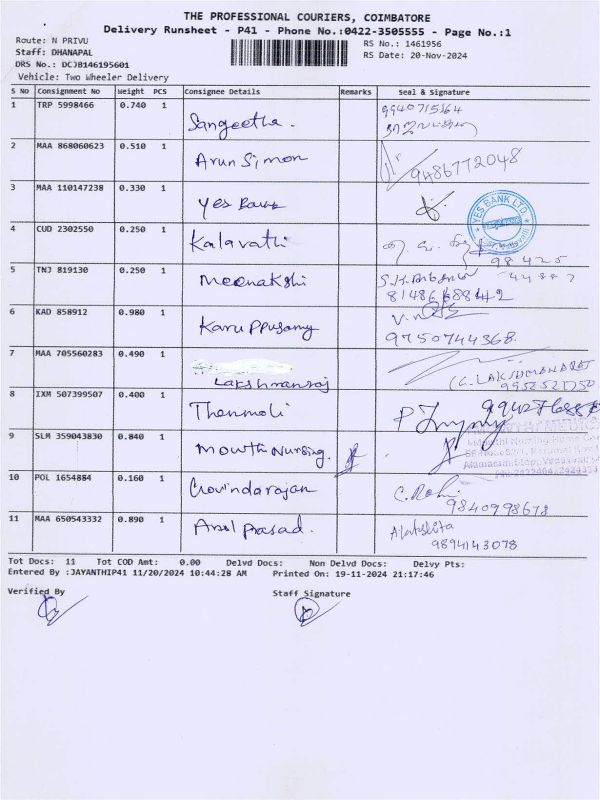 THE PROFESSIONAL COURIERS, COIMBATORE
Delivery Runsheet - P41 - Phone No.:0422-3505555 - Page No.:1
Route: N PRIVU
RS No.: 1461956
Staff: DHANAPAL
RS Date: 20-Nov-2024
DRS No.: DCJB146195601
Vehicle: Two Wheeler Delivery
S No Consignment No Weight PCS Consignee Details Remarks Seal & Signature
1 TRP 5998466 0.740 1 Sangeetha.
2 MAA 868060623 0.510 1 Arun Simon 9486772048
3 MAA 110147238 0.330 1 Yes Bank
YES BANK LTD.
4 CUD 2302550 0.250 1 Kalavathi
98420
5 TNJ 819130 0.250 1 Meenakshi
6 KAD 858912 0.980 1 Karuppusamy
9750744368
7 MAA 705560283 0.490 1 Lakshmanraj
8 IXM 507399507 0.400 1 Thenmoli
9 SLM 359043830 0.840 1 Mowthi Nursing.
10 POL 1654884 0.160 1 Govindarajan
9840998678
11 MAA 650543332 0.890 1 Arul prasad.
9894143078
Tot Docs: 11 Tot COD Amt: 0.00 Delvd Docs: Non Delvd Docs: Delvy Pts:
Entered By :JAYANTHIP41 11/20/2024 10:44:28 AM Printed On: 19-11-2024 21:17:46
Verified By Staff Signature